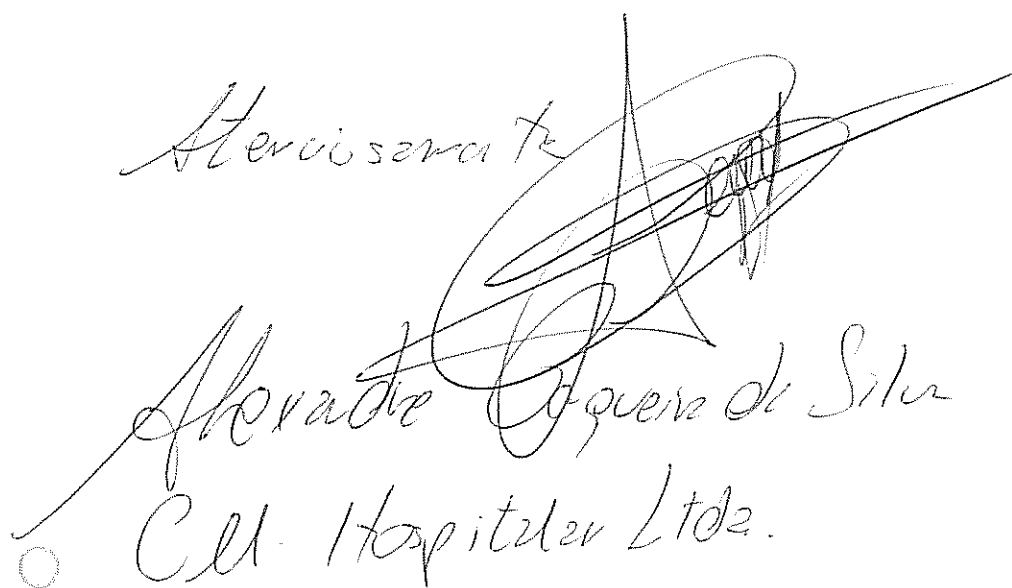 Atenciosamente
Alexandre Cequeira da Silva
CM. Hospitalar Ltda.